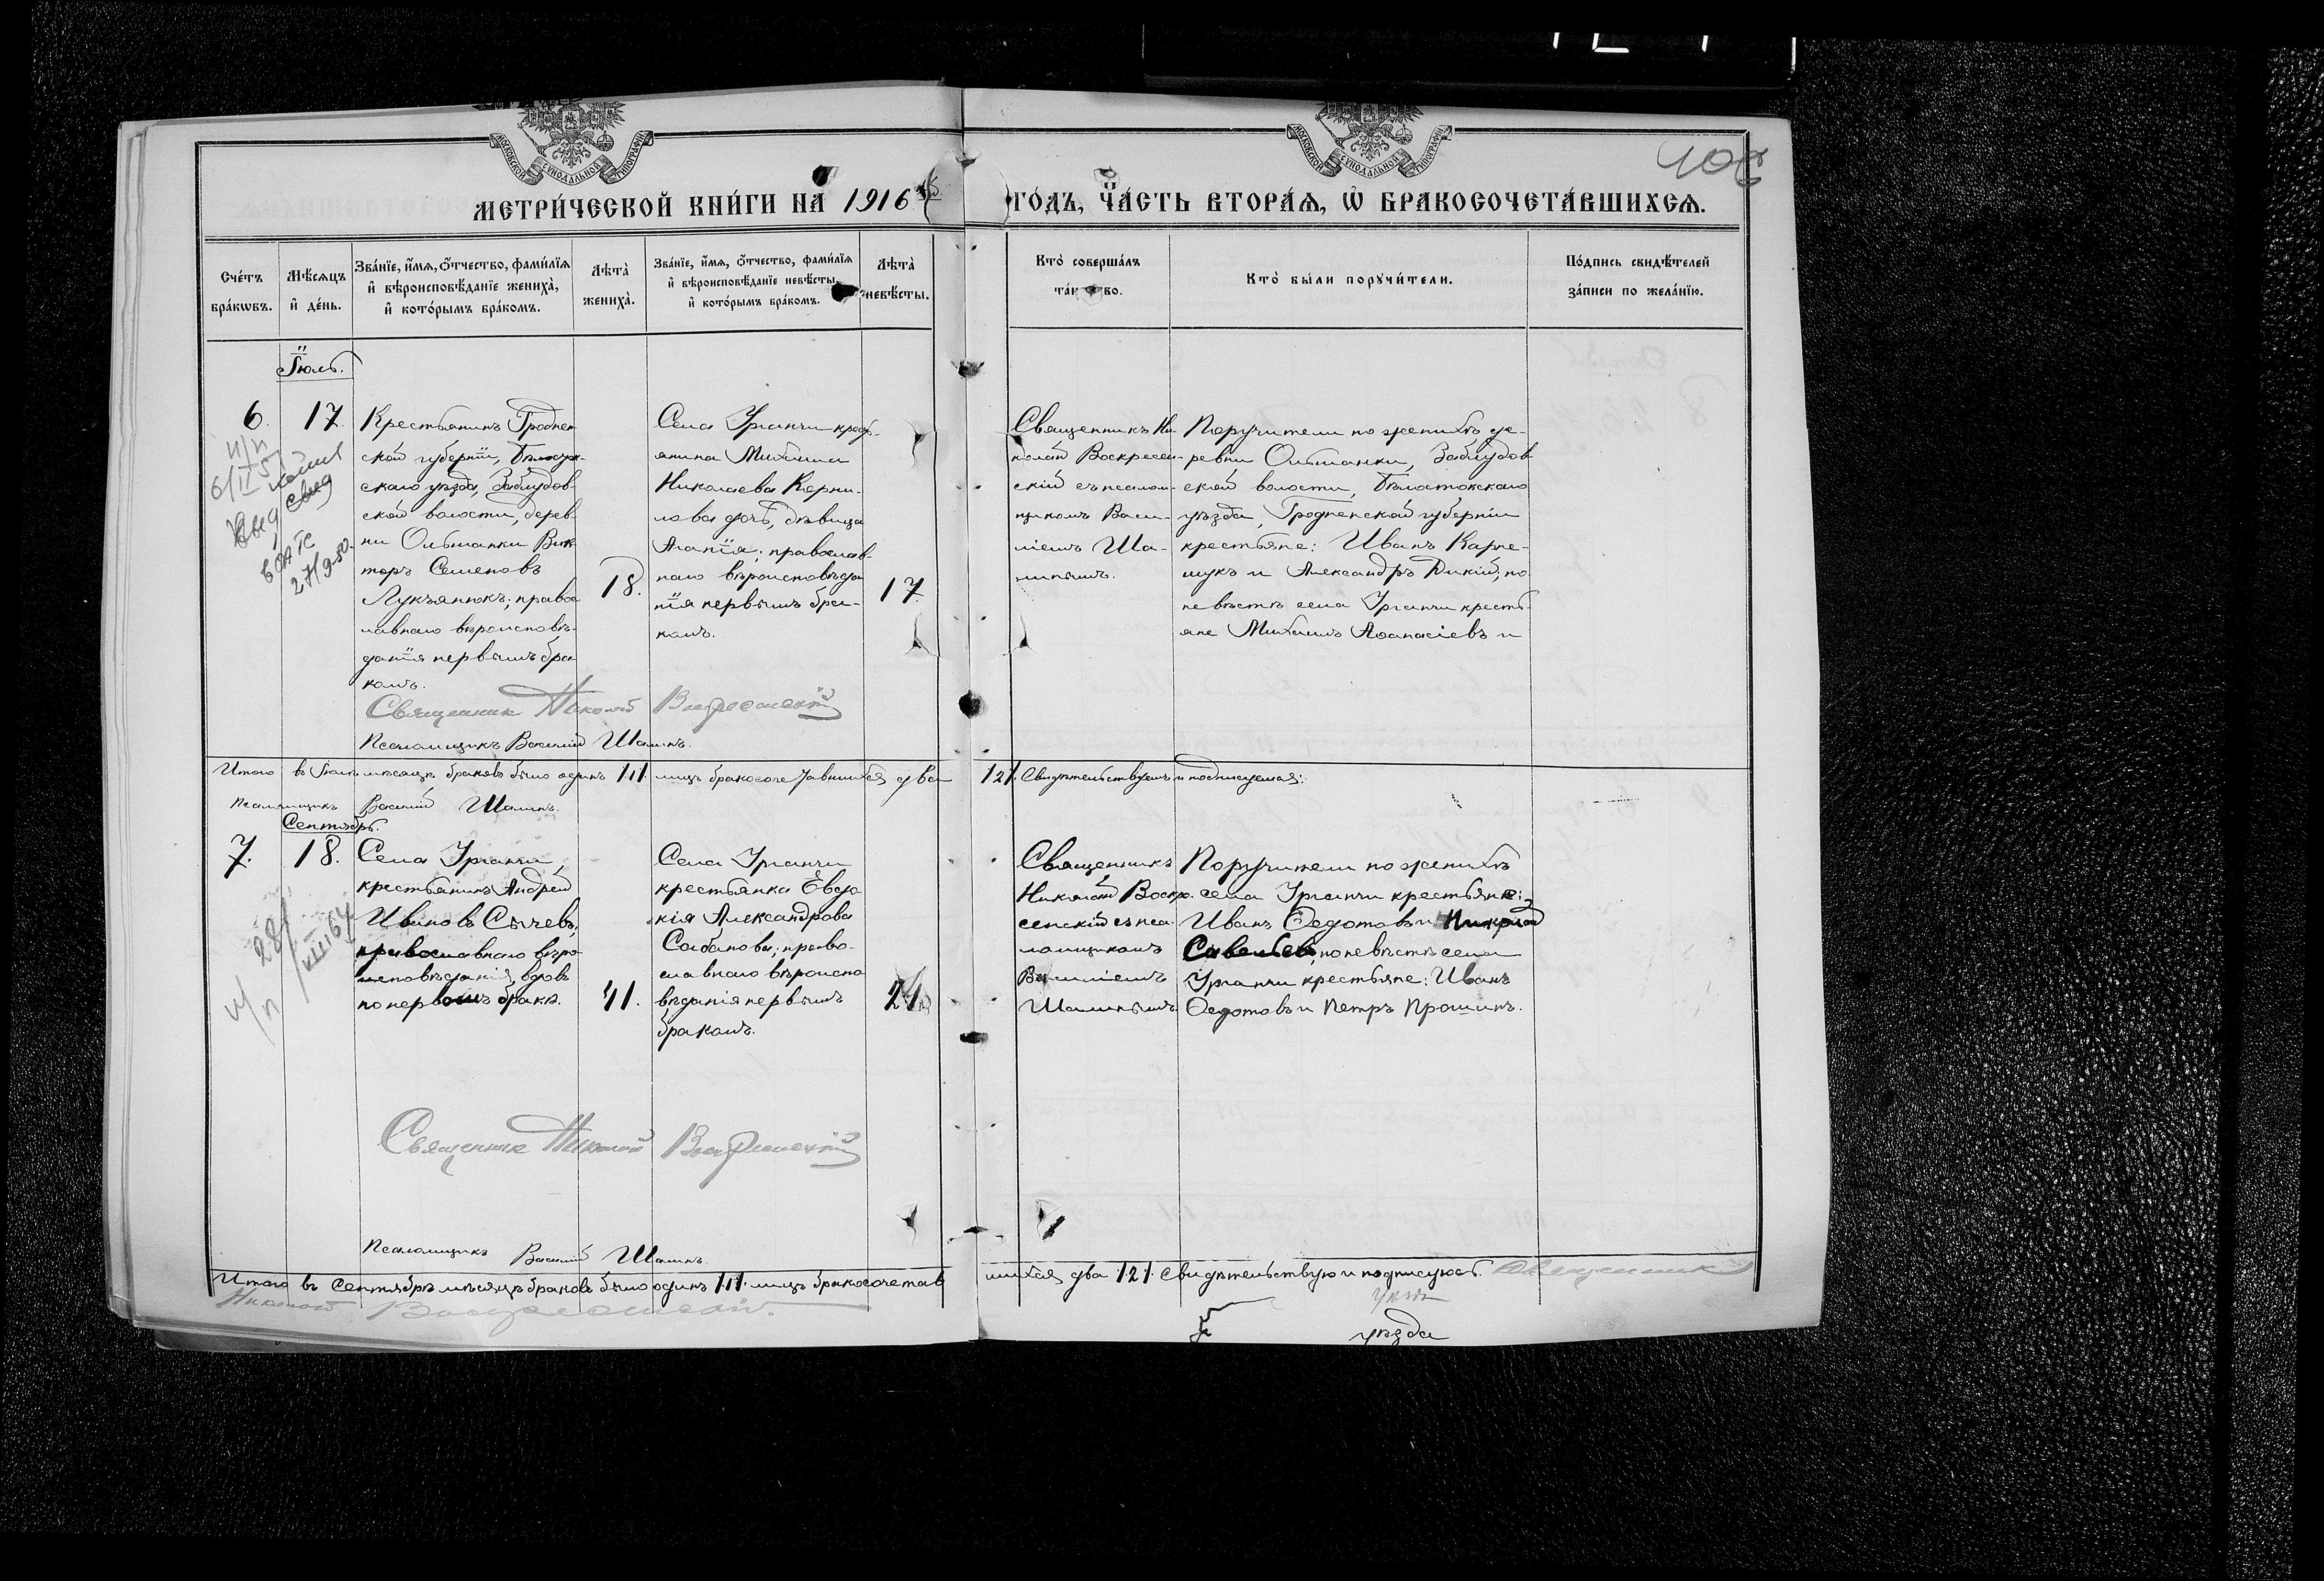 МОСКОВСКОЙ СѴНОДАЛЬНОЙ ТИПОГРАФІИ
МОСКОВСКОЙ СѴНОДАЛЬНОЙ ТИПОГРАФІИ
МЕТРИ́ЧЕСКОЙ КНИ́ГИ НА 1916
ГО́ДЪ, ЧА́СТЬ ВТОРА́Я, Ѽ БРАКОСОЧЕТА́ВШИХСЯ.
Сче́тъ бра́кѡвъ.
Мѣ́сяцъ и де́нь.
Зва́нїе, и́мя, ѻ́тчество, фами́лїя
и вѣроисповѣ́данїе жениха̀,
и кото́рымъ бра́комъ.
Лѣта̀ жениха̀.
Зва́нїе, и́мя, ѻ́тчество, фами́лїя
и вѣроисповѣ́данїе невѣ́сты,
и кото́рымъ бра́комъ.
Лѣта̀ невѣ́сты.
Кто̀ соверша́лъ
Кто̀ бы́ли поручи́тели.
По́дпись свидѣ́телей
за́писи по жела́нїю.
Іюль.
6.
17.
Крестьянинъ Гроднен
ской губерніи, Бѣлосток-
скаго уѣзда, Заблудов-
ской волости, дерев-
ни Ольшанки Вик-
торъ Семеновъ
Лукъянюкъ; правос
лавнаго вѣроисповѣ-
данія первымъ бра
комъ.
18.
Села Урганчи крест-
янина Михаила
Николаева Корни-
лова дочь, дѣвица
Агапія; православ-
наго вѣроисповѣда
нія первымъ бра-
комъ.
17.
Священникъ Ни-
колай Воскресен-
скій съ псалом-
щикомъ Васи-
ліемъ Ша-
Поручители по женихѣ де-
ревни Ольшанки, Заблудов
ской волости, Бѣлостокскаго
уѣзда, Гродненской губерніи
крестьяне: Иванъ Карпе-
шукъ и Александръ Дикій; по
невѣстѣ села Урганчи кресть-
яне Михаилъ Аѳанасіевъ и
Священникъ Николай Воскресенскій
Псаломщикъ Василій Шалинъ.
Итого въ Іюлѣ мѣсяцѣ браковъ было одинъ /1/. лицъ бракосочетавшихся два
/2/. Свидѣтельствуемъ и подписуемся:
Псаломщикъ Василій Шалинъ.
Сентябрь.
7.
18.
Села Урганчи,
крестьянинъ Андрей
Ивановъ Сычевъ,
православнаго вѣро
исповѣданія, вдовъ
по первомъ бракѣ.
41.
Села Урганчи
крестьянка Евдо
кія Александрова
Сабанова; право-
славнаго вѣроиспо
вѣданія первымъ
бракомъ.
Священникъ
Николай Воскре-
сенскій съ пса-
ломщикомъ
Василіемъ
Поручители по женихѣ
села Урганчи крестьяне:
Иванъ Ѳедотовъ и Николай
Савельевъ, по невѣстѣ села
Урганчи крестьяне: Иванъ
Ѳедотовъ и Петръ Прошинъ.
Священникъ Николай Воскресенскій
Псаломщикъ Василій Шалинъ.
Итого въ Сентябрѣ мѣсяцѣ браковъ было одинъ /1/. лицъ бракосочетав
шихся два /2/. Свидѣтельствую и подписуюсь. Священникъ
Николай Воскресенскій.
уѣзда